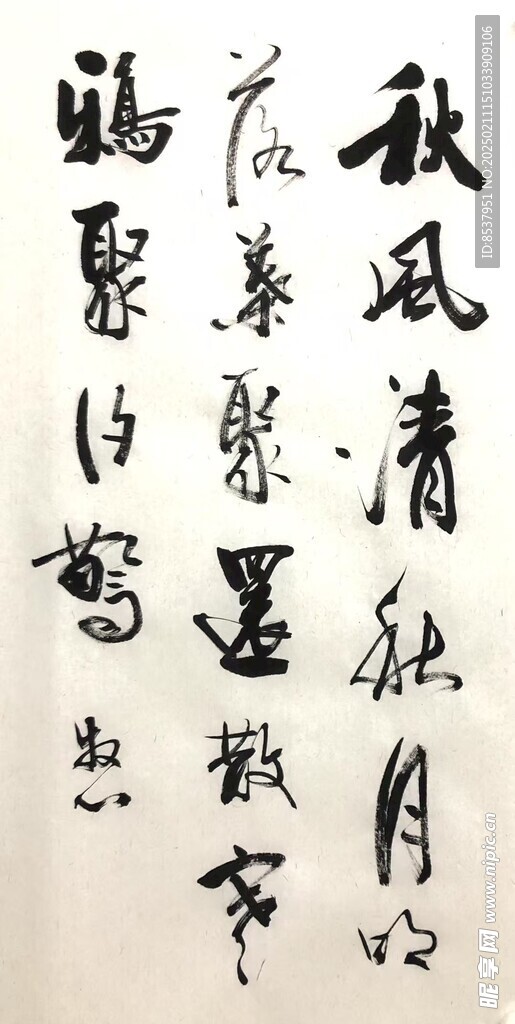 秋風清秋月明
落葉聚還散寒
鴉聚復驚
ID:8537951 NO:20250211151033909106
昵享网 www.nipic.cn